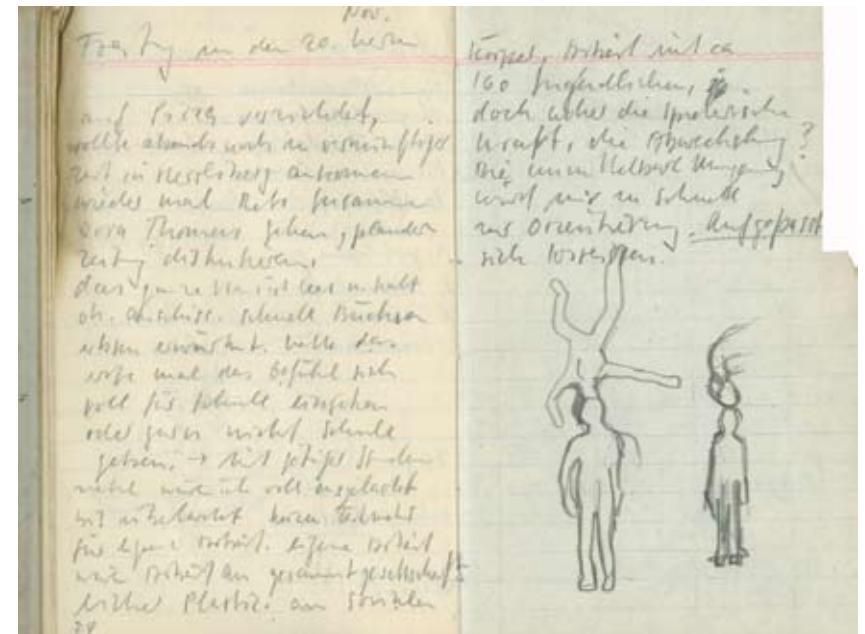 Nov.
Freitag an den 20.
auf Pizza verzichtet,
wollte abends noch zu vernünftiger
Zeit in Herrliberg ankommen
wieder mal Reto Susanna
Vera Thomas sehen, plaudern
zeitig diskutieren.
das ganze Haus ist leer u. kalt
oh. schnell Büchsen
erbsen erwärmt. hatte das
erste mal das Gefühl mich
voll für Schule eingehen
oder gar nicht Schule
geben. → Mit jetziger Stunden
zahl wäre ich voll ausgelastet
bis überlastet keine Zeit mehr
für eigene Arbeit. eigene Arbeit
wäre Arbeit an gesamtgesellschaft
licher Plastik. am sozialen
28
Körper, Arbeit mit ca
160 Jugendlichen,
doch woher die spielerische
Kraft, die Abwechslung?
Die Umgang
wird mir zu schnell
zur Orientierung. Aufgepasst
sich